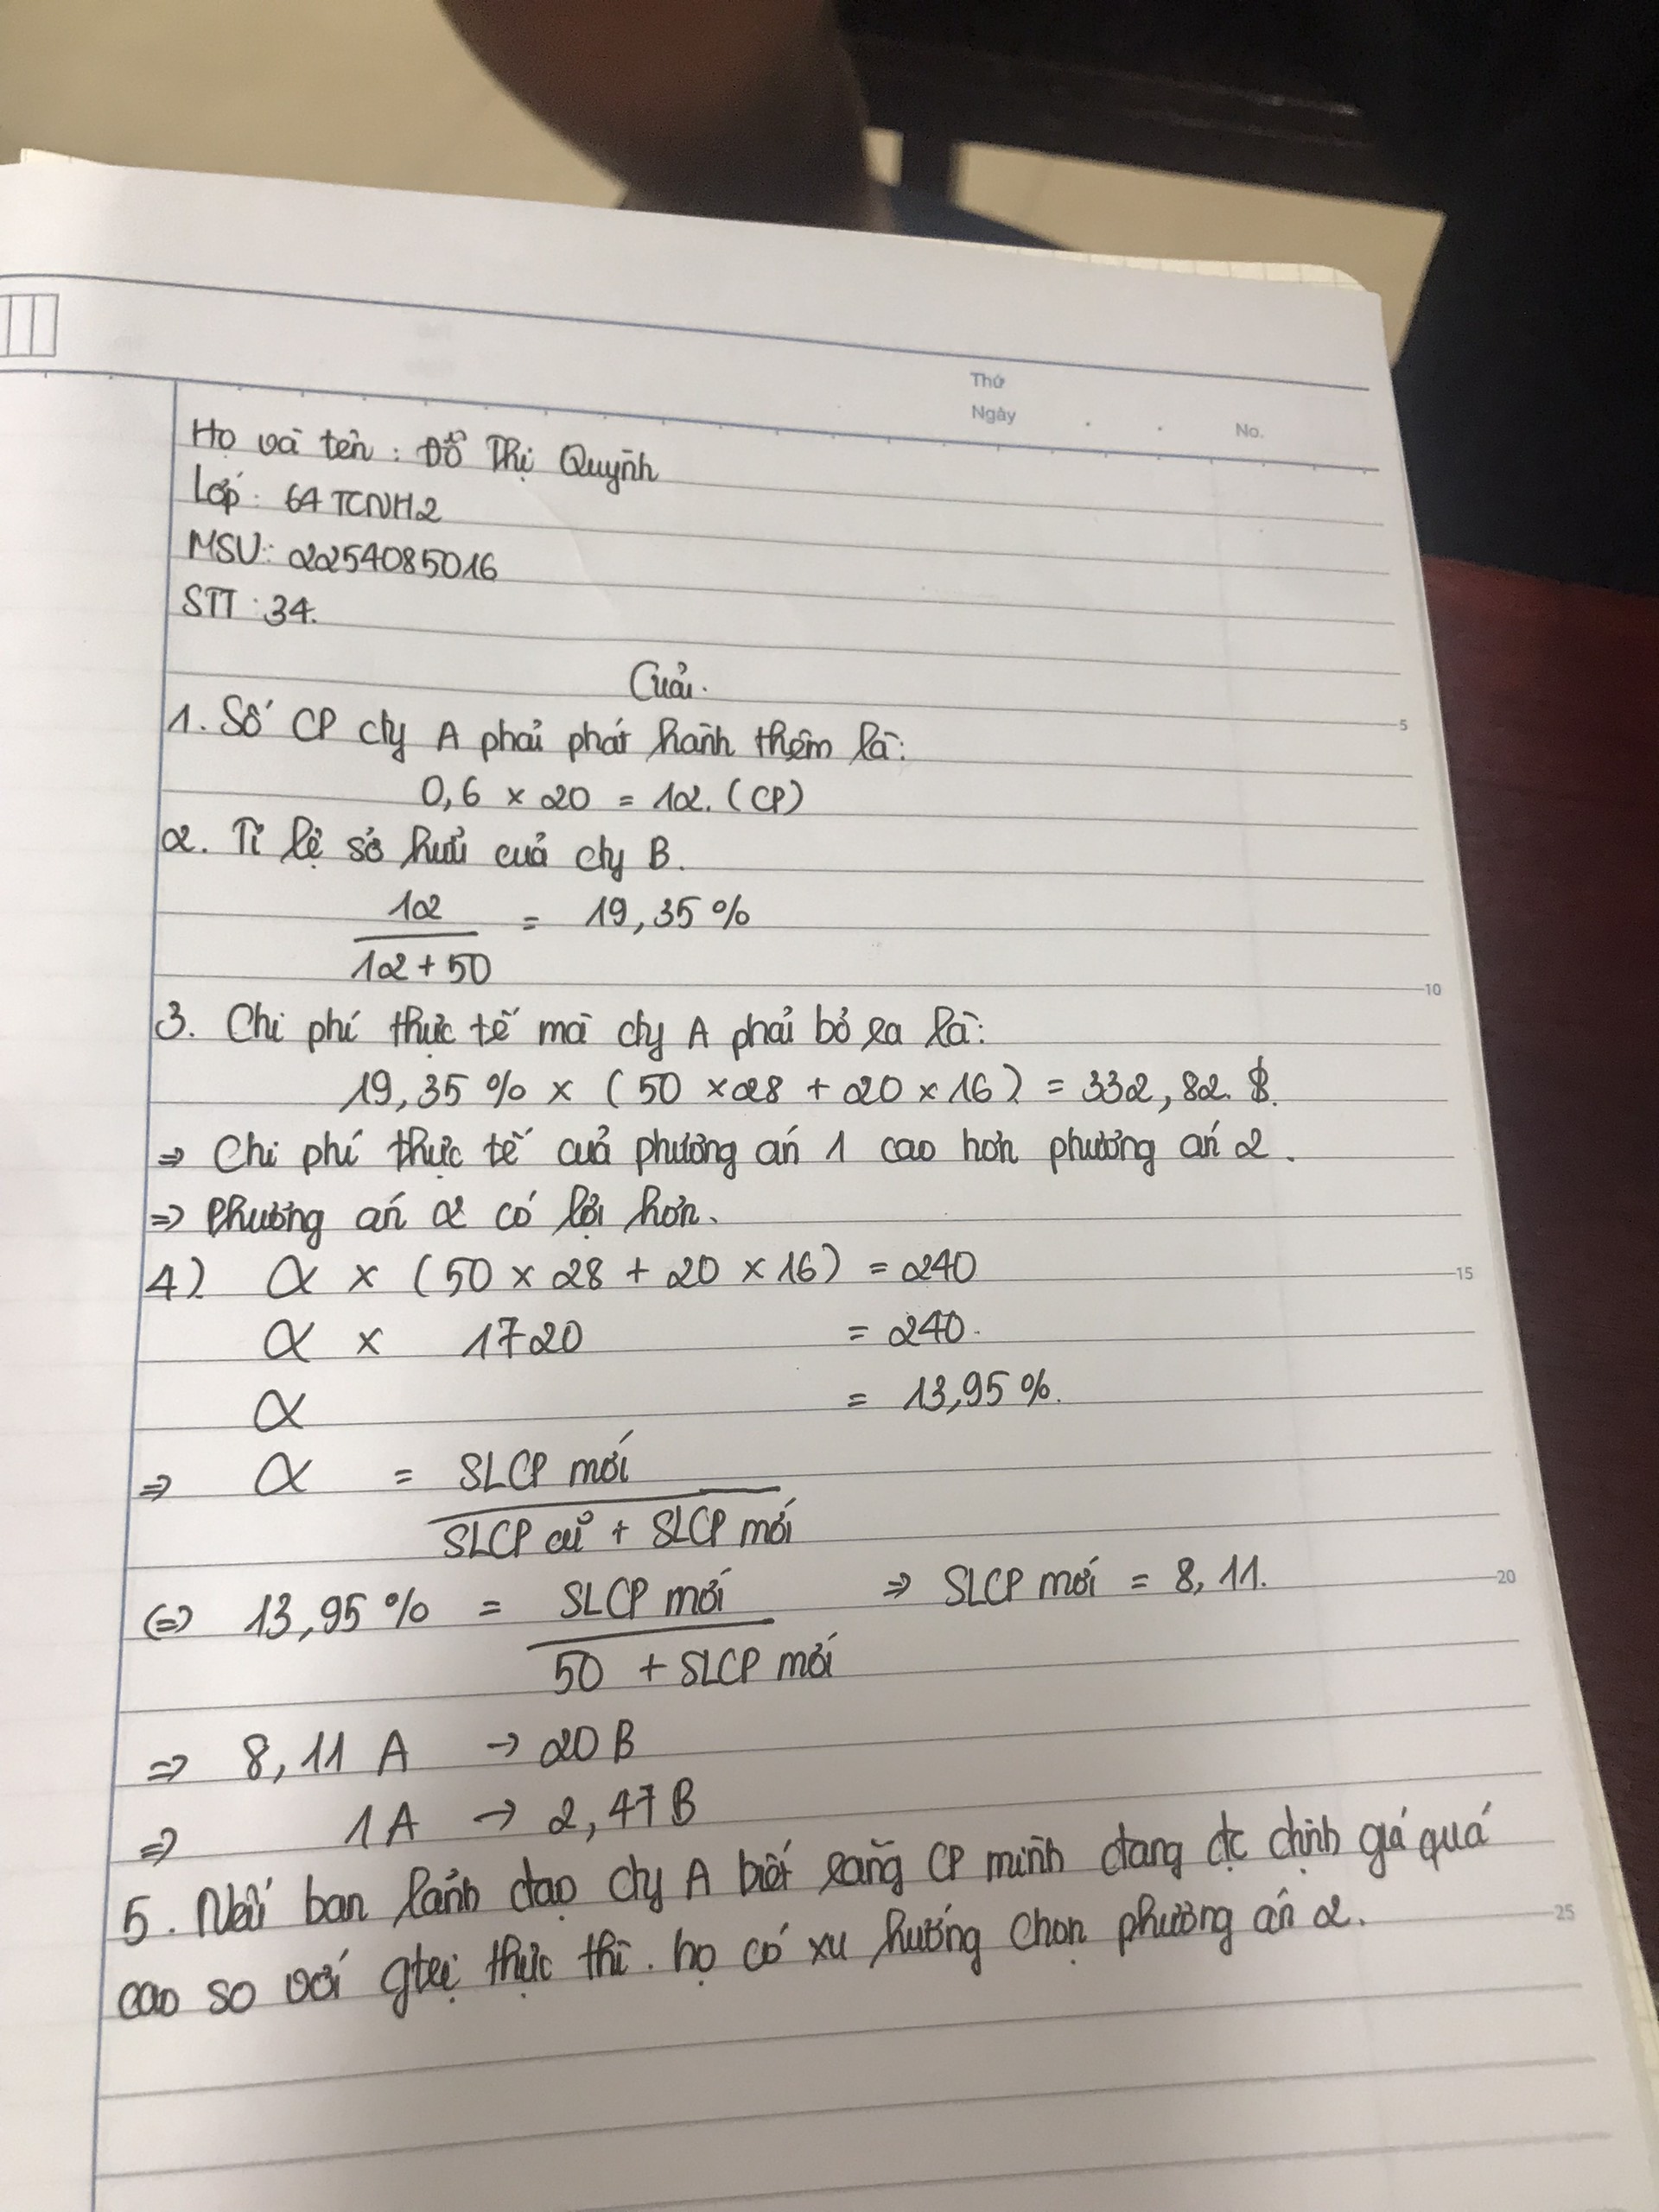 Thứ
Ngày . . No.
Họ và tên : Đỗ Thị Quỳnh
Lớp : 64 TCNH2
MSV : 2254085016
STT : 34.
Giải.
1. Số CP cty A phải phát hành thêm là:
0,6 × 20 = 12. (CP)
2. Tỉ lệ sở hữu của cty B.
12 / 12 + 50 = 19,35 %
10
3. Chi phí thực tế mà cty A phải bỏ ra là:
19,35 % × ( 50 × 28 + 20 × 16 ) = 332,82. $.
⇒ Chi phí thực tế của phương án 1 cao hơn phương án 2 .
⇒ Phương án 2 có lợi hơn.
4) α × ( 50 × 28 + 20 × 16 ) = 240
15
α × 1720 = 240.
α = 13,95 %.
⇒ α = SLCP mới / SLCP cũ + SLCP mới
(=) 13,95 % = SLCP mới / 50 + SLCP mới ⇒ SLCP mới = 8,11.
20
⇒ 8,11 A → 20 B
⇒ 1 A → 2,47 B
5. Nếu ban lãnh đạo cty A biết rằng CP mình đang đc định giá quá
cao so với gtrị thực thì . họ có xu hướng chọn phương án 2.
25
5